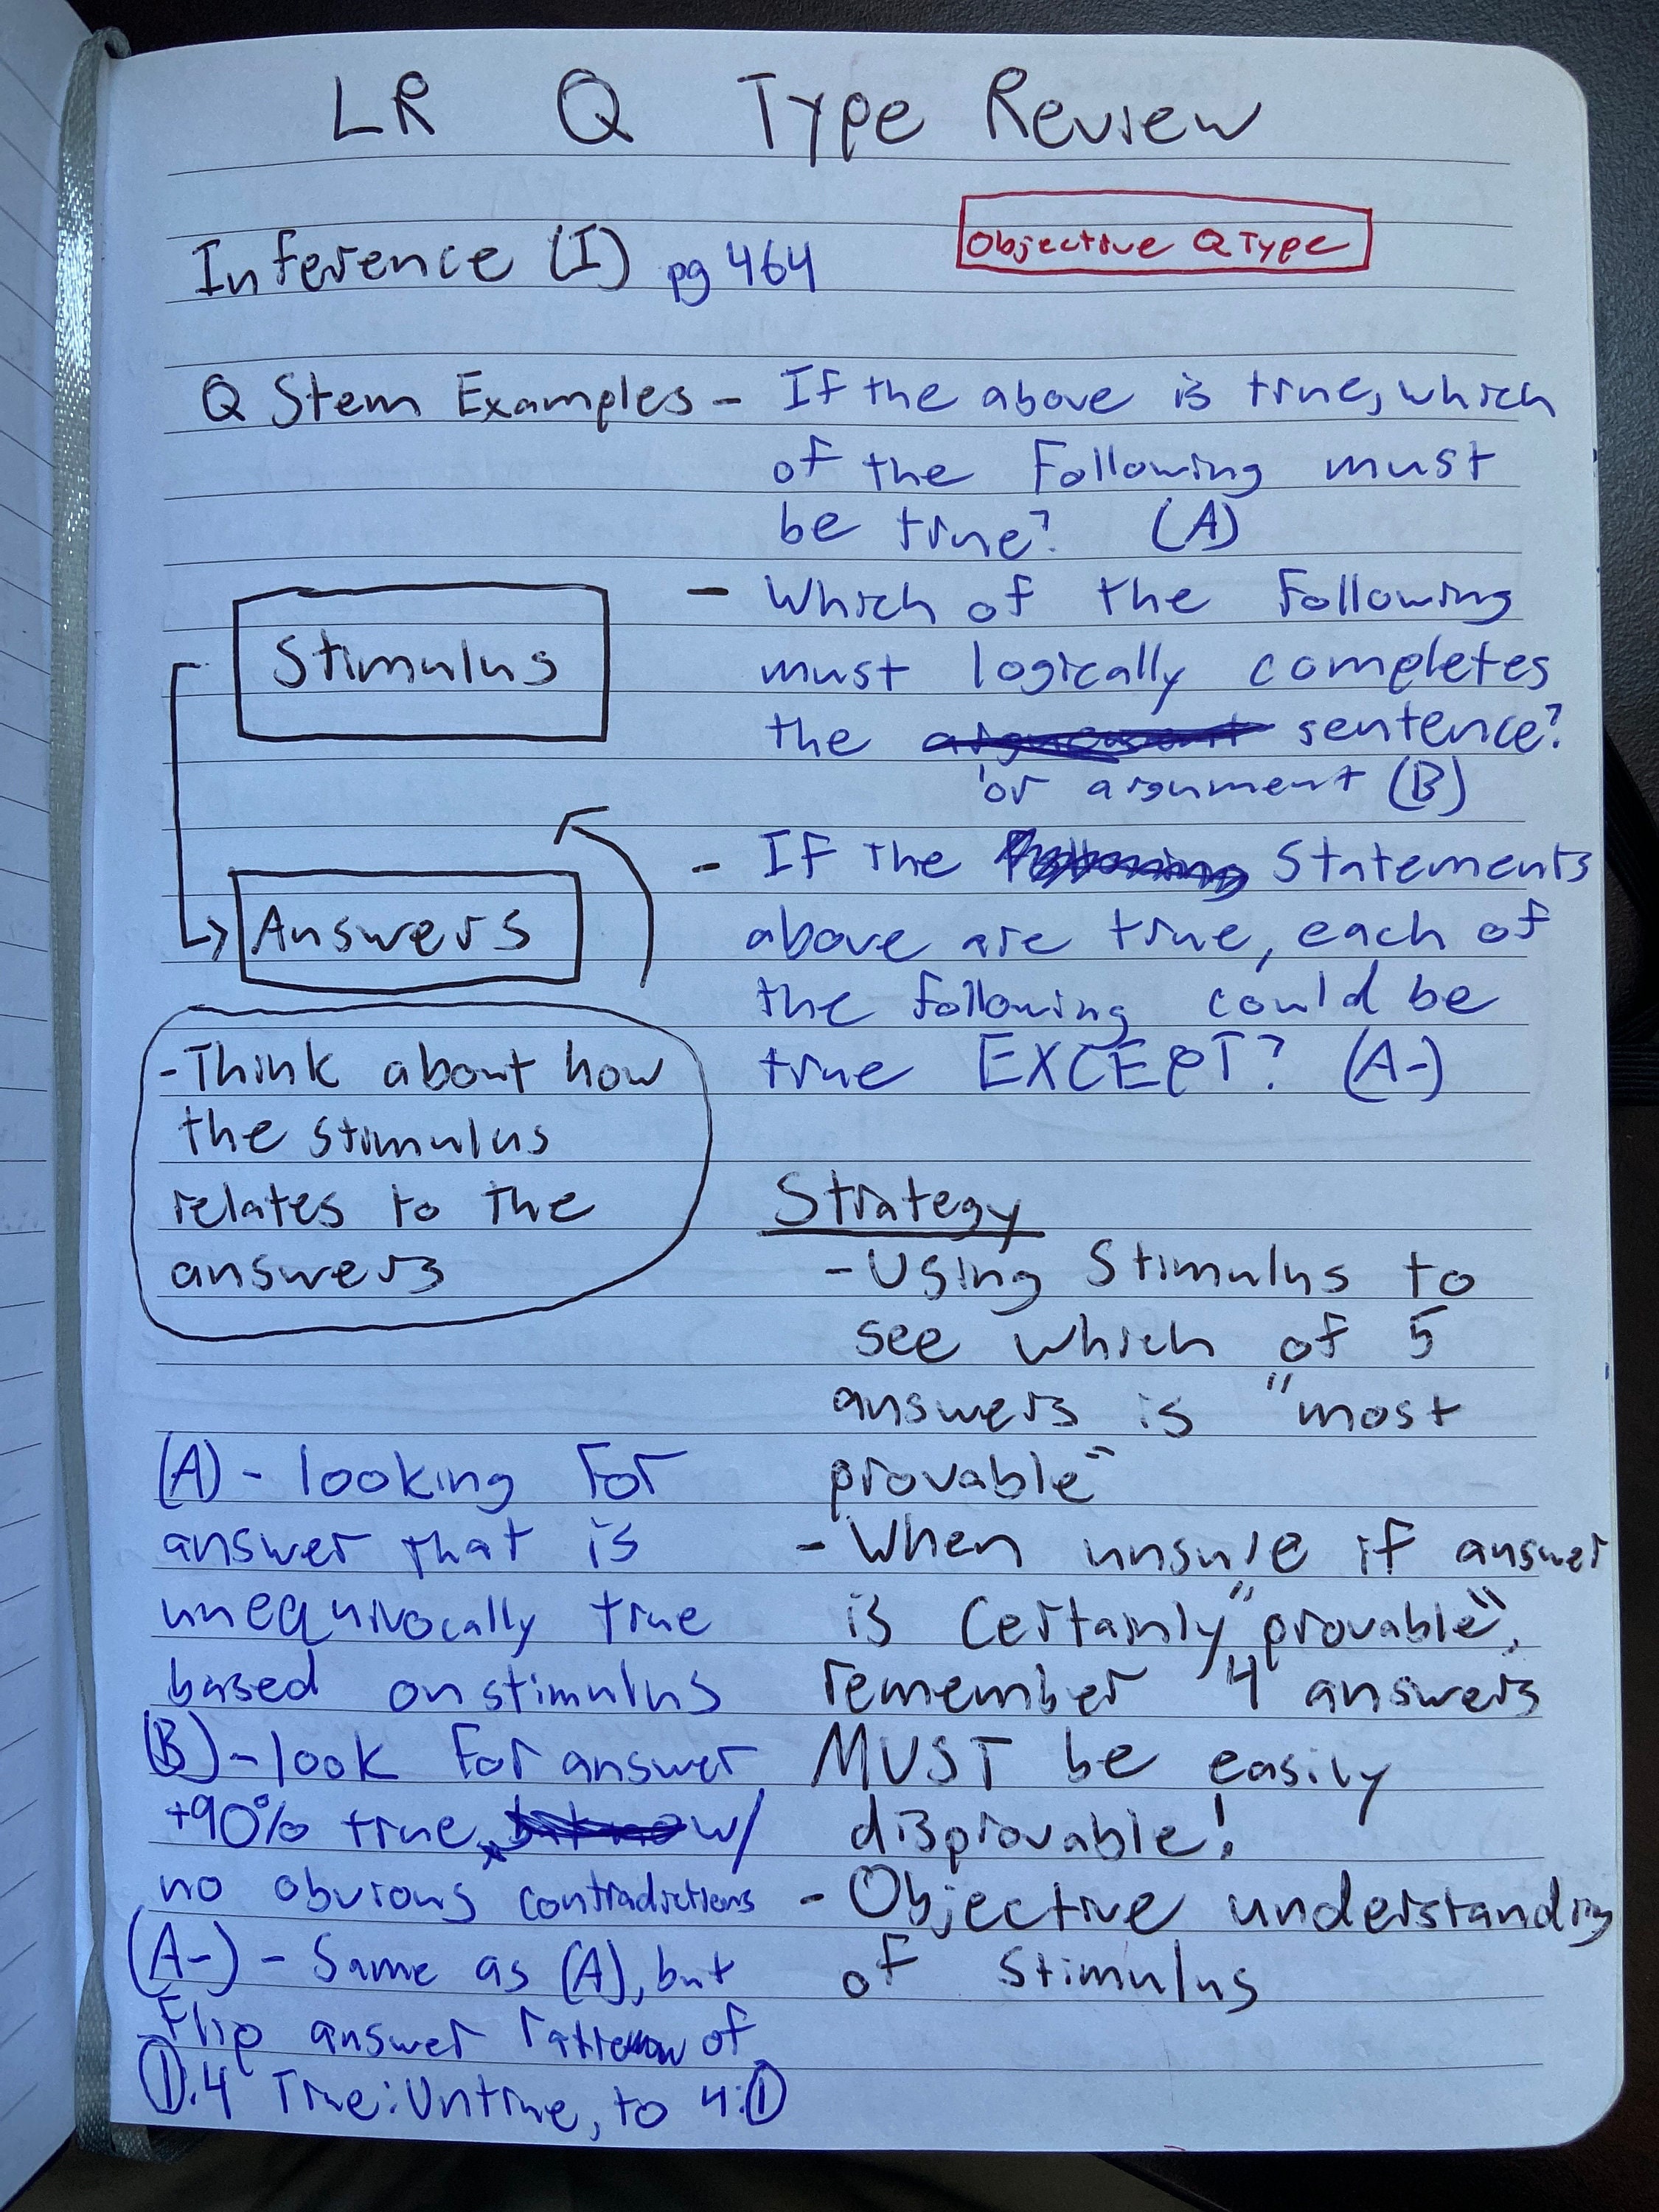 LR Q Type Review
Inference (I) pg 464
Objective Q Type
Q Stem Examples - If the above is true, which
of the following must
be true? (A)
- Which of the following
must logically completes
the sentence?
or argument (B)
- If the Statements
above are true, each of
the following could be
true EXCEPT? (A-)
Stimulus
Answers
- Think about how
the stimulus
relates to the
answers
Strategy
- Using Stimulus to
see which of 5
answers is "most
provable"
- When unsure if answer
is Certainly "provable",
remember 4 answers
MUST be easily
disprovable!
- Objective understanding
of Stimulus
(A) - looking for
answer that is
unequivocally true
based on stimulus
(B) - look for answer
+90% true, w/
no obvious contradictions
(A-) - Same as (A), but
Flip answer of
1:4 True:Untrue, to 4:1